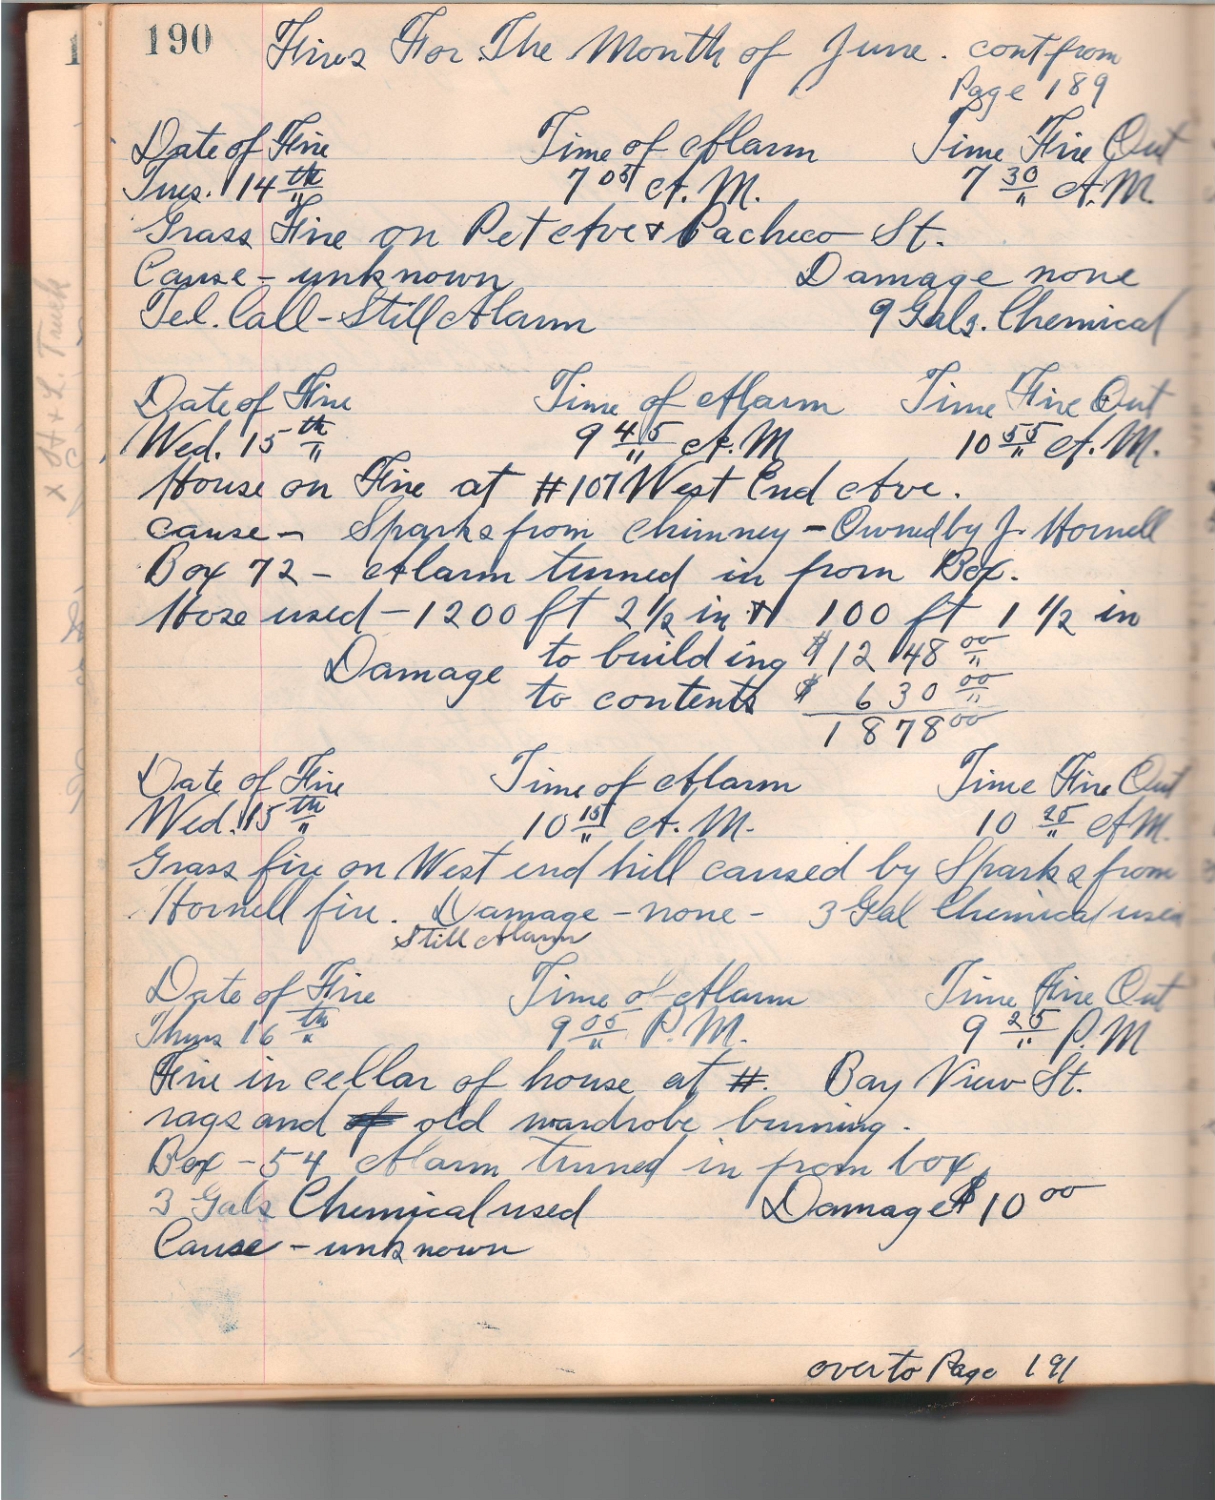 190 Fires For The Month of June. cont from
Page 189
Date of Fire Time of Alarm Time Fire Out
Tues. 14th 7 05 A.M. 7 30 A.M.
Grass Fire on Pet Ave & Pacheco St.
Cause - unknown Damage none
Tel. Call - Still Alarm 9 Gals. Chemical
Date of Fire Time of Alarm Time Fire Out
Wed. 15th 9 45 A.M 10 55 A.M.
House on Fire at #107 West End Ave.
cause - Sparks from chimney - Owned by J. Hornell
Box 72 - Alarm turned in from Box.
Hose used - 1200 ft 2 1/2 in & 100 ft 1 1/2 in
Damage to building $1248 00
to contents $ 630 00
1878 00
Date of Fire Time of Alarm Time Fire Out
Wed. 15th 10 15 A.M. 10 25 A.M.
Grass fire on West end hill caused by Sparks from
Hornell fire. Damage - none - 3 Gal Chemical used
Still Alarm
Date of Fire Time of Alarm Time Fire Out
Thurs 16th 9 05 P.M. 9 25 P.M
Fire in cellar of house at #. Bay View St.
rags and old wardrobe burning.
Box - 54 Alarm turned in from box,
3 Gals Chemical used Damage $10 00
Cause - unknown
over to Page 191
x H + L. Truck